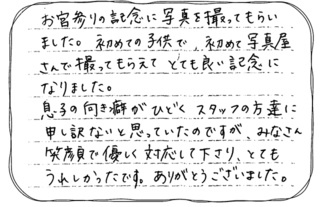 お宮参りの記念に写真を撮ってもらい
ました。初めての子供で、初めて写真屋
さんで撮ってもらえて とても良い記念に
なりました。
息子の向き癖がひどく スタッフの方達に
申し訳ないと思っていたのですが、みなさん
笑顔で優しく対応して下さり、とても
うれしかったです。ありがとうございました。